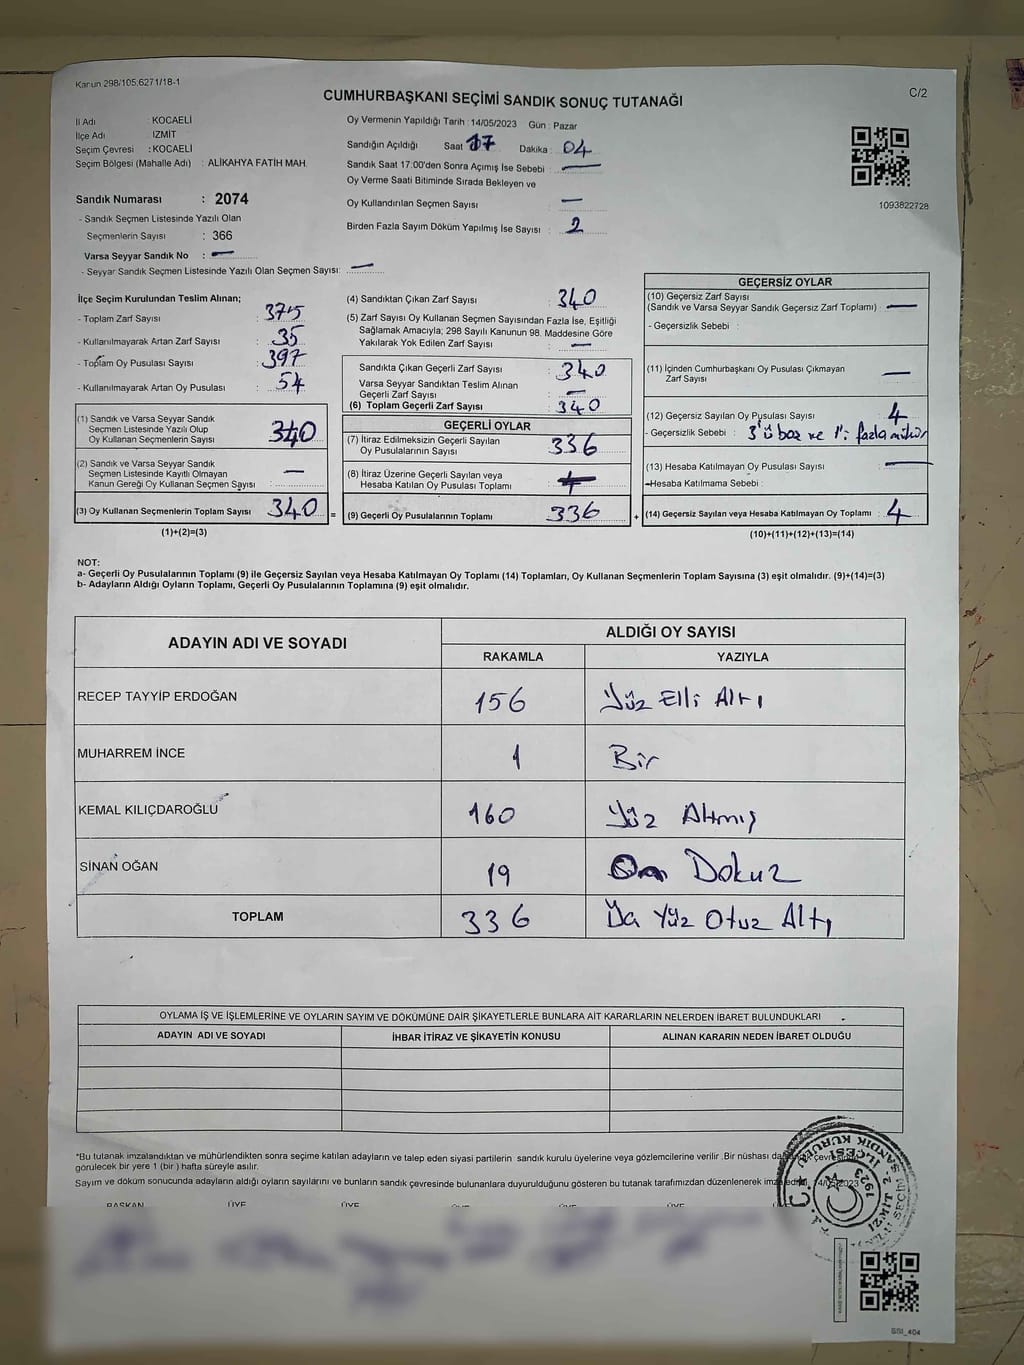 Kanun 298/105,6271/18-1
CUMHURBAŞKANI SEÇİMİ SANDIK SONUÇ TUTANAĞI
C/2
İl Adı : KOCAELİ
İlçe Adı İZMİT
Seçim Çevresi : KOCAELİ
Seçim Bölgesi (Mahalle Adı) : ALİKAHYA FATİH MAH.
Sandık Numarası : 2074
- Sandık Seçmen Listesinde Yazılı Olan
Seçmenlerin Sayısı : 366
Varsa Seyyar Sandık No : —
- Seyyar Sandık Seçmen Listesinde Yazılı Olan Seçmen Sayısı: —
Oy Vermenin Yapıldığı Tarih : 14/05/2023 Gün : Pazar
Sandığın Açıldığı Saat 17 Dakika : 04
Sandık Saat 17:00'den Sonra Açımış İse Sebebi : —
Oy Verme Saati Bitiminde Sırada Bekleyen ve
Oy Kullandırılan Seçmen Sayısı —
Birden Fazla Sayım Döküm Yapılmış İse Sayısı : 2
1093822728
İlçe Seçim Kurulundan Teslim Alınan;
- Toplam Zarf Sayısı : 375
- Kullanılmayarak Artan Zarf Sayısı : 35
- Toplam Oy Pusulası Sayısı : 397
- Kullanılmayarak Artan Oy Pusulası : 54
(1) Sandık ve Varsa Seyyar Sandık
Seçmen Listesinde Yazılı Olup
Oy Kullanan Seçmenlerin Sayısı 340
(2) Sandık ve Varsa Seyyar Sandık
Seçmen Listesinde Kayıtlı Olmayan
Kanun Gereği Oy Kullanan Seçmen Sayısı : —
(3) Oy Kullanan Seçmenlerin Toplam Sayısı 340
(1)+(2)=(3)
=
(4) Sandıktan Çıkan Zarf Sayısı : 340
(5) Zarf Sayısı Oy Kullanan Seçmen Sayısından Fazla İse, Eşitliği
Sağlamak Amacıyla; 298 Sayılı Kanunun 98. Maddesine Göre
Yakılarak Yok Edilen Zarf Sayısı : —
Sandıkta Çıkan Geçerli Zarf Sayısı : 340
Varsa Seyyar Sandıktan Teslim Alınan
Geçerli Zarf Sayısı : —
(6) Toplam Geçerli Zarf Sayısı : 340
GEÇERLİ OYLAR
(7) İtiraz Edilmeksizin Geçerli Sayılan
Oy Pusulalarının Sayısı 336
(8) İtiraz Üzerine Geçerli Sayılan veya
Hesaba Katılan Oy Pusulası Toplamı
(9) Geçerli Oy Pusulalarının Toplamı 336
+
GEÇERSİZ OYLAR
(10) Geçersiz Zarf Sayısı
(Sandık ve Varsa Seyyar Sandık Geçersiz Zarf Toplamı) : —
- Geçersizlik Sebebi :
(11) İçinden Cumhurbaşkanı Oy Pusulası Çıkmayan
Zarf Sayısı —
(12) Geçersiz Sayılan Oy Pusulası Sayısı : 4
- Geçersizlik Sebebi : 3'ü boş ve 1'i fazla mühür
(13) Hesaba Katılmayan Oy Pusulası Sayısı : —
-Hesaba Katılmama Sebebi :
(14) Geçersiz Sayılan veya Hesaba Katılmayan Oy Toplamı : 4
(10)+(11)+(12)+(13)=(14)
NOT:
a- Geçerli Oy Pusulalarının Toplamı (9) ile Geçersiz Sayılan veya Hesaba Katılmayan Oy Toplamı (14) Toplamları, Oy Kullanan Seçmenlerin Toplam Sayısına (3) eşit olmalıdır. (9)+(14)=(3)
b- Adayların Aldığı Oyların Toplamı, Geçerli Oy Pusulalarının Toplamına (9) eşit olmalıdır.
ADAYIN ADI VE SOYADI ALDIĞI OY SAYISI
RAKAMLA YAZIYLA
RECEP TAYYİP ERDOĞAN 156 Yüz Elli Altı
MUHARREM İNCE 1 Bir
KEMAL KILIÇDAROĞLU 160 Yüz Altmış
SİNAN OĞAN 19 On Dokuz
TOPLAM 336 Yüz Otuz Altı
OYLAMA İŞ VE İŞLEMLERİNE VE OYLARIN SAYIM VE DÖKÜMÜNE DAİR ŞİKAYETLERLE BUNLARA AİT KARARLARIN NELERDEN İBARET BULUNDUKLARI
ADAYIN ADI VE SOYADI İHBAR İTİRAZ VE ŞİKAYETİN KONUSU ALINAN KARARIN NEDEN İBARET OLDUĞU
*Bu tutanak imzalandıktan ve mühürlendikten sonra seçime katılan adayların ve talep eden siyasi partilerin sandık kurulu üyelerine veya gözlemcilerine verilir .Bir nüshası da
görülecek bir yere 1 (bir ) hafta süreyle asılır.
Sayım ve döküm sonucunda adayların aldığı oyların sayılarını ve bunların sandık çevresinde bulunanlara duyurulduğunu gösteren bu tutanak tarafımızdan düzenlenerek 14/05/2023
BAŞKAN ÜYE ÜYE ÜYE ÜYE ÜYE
T.C.
İZMİT 2. İLÇESİ
SANDIK KURULU
1923